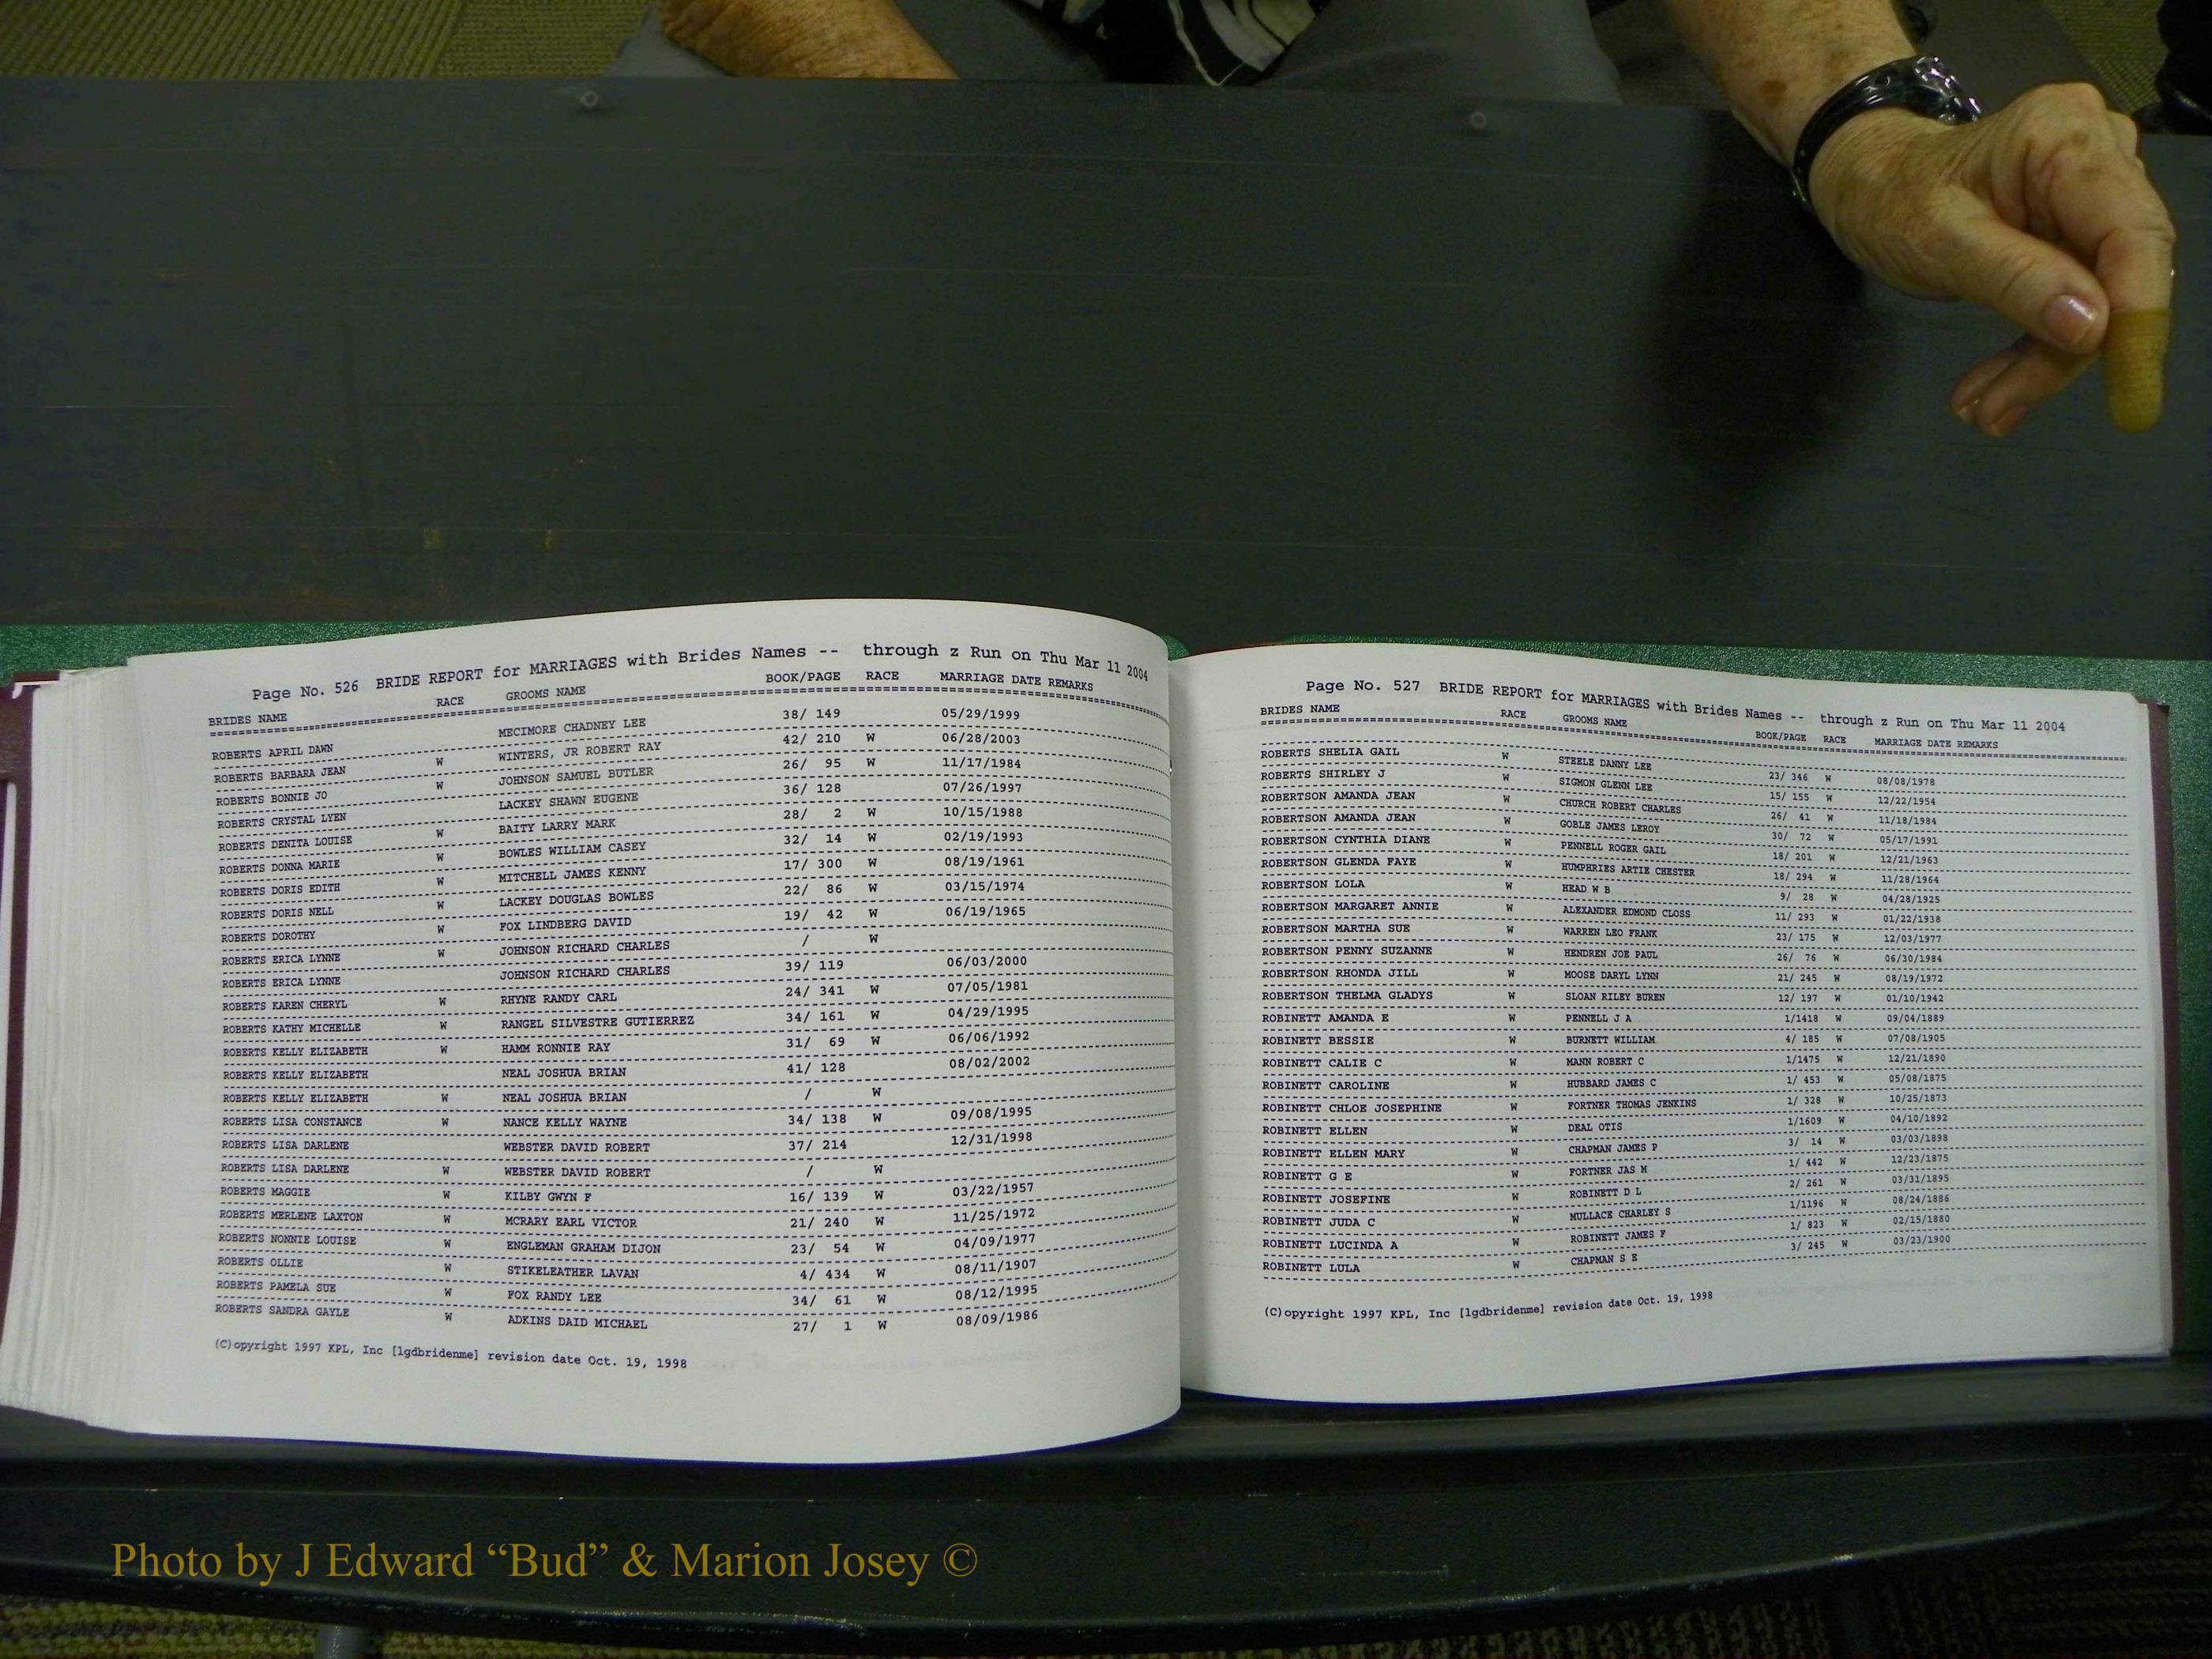 Page No. 526 BRIDE REPORT for MARRIAGES with Brides Names -- through z Run on Thu Mar 11 2004
BRIDES NAME RACE GROOMS NAME BOOK/PAGE RACE MARRIAGE DATE REMARKS
ROBERTS APRIL DAWN MECIMORE CHADNEY LEE 38/ 149 05/29/1999
ROBERTS BARBARA JEAN W WINTERS, JR ROBERT RAY 42/ 210 W 06/28/2003
ROBERTS BONNIE JO W JOHNSON SAMUEL BUTLER 26/ 95 W 11/17/1984
ROBERTS CRYSTAL LYEN LACKEY SHAWN EUGENE 36/ 128 07/26/1997
ROBERTS DENITA LOUISE W BAITY LARRY MARK 28/ 2 W 10/15/1988
ROBERTS DONNA MARIE W BOWLES WILLIAM CASEY 32/ 14 W 02/19/1993
ROBERTS DORIS EDITH W MITCHELL JAMES KENNY 17/ 300 W 08/19/1961
ROBERTS DORIS NELL W LACKEY DOUGLAS BOWLES 22/ 86 W 03/15/1974
ROBERTS DOROTHY W FOX LINDBERG DAVID 19/ 42 W 06/19/1965
ROBERTS ERICA LYNNE W JOHNSON RICHARD CHARLES / W
ROBERTS ERICA LYNNE JOHNSON RICHARD CHARLES 39/ 119 06/03/2000
ROBERTS KAREN CHERYL W RHYNE RANDY CARL 24/ 341 W 07/05/1981
ROBERTS KATHY MICHELLE W RANGEL SILVESTRE GUTIERREZ 34/ 161 W 04/29/1995
ROBERTS KELLY ELIZABETH W HAMM RONNIE RAY 31/ 69 W 06/06/1992
ROBERTS KELLY ELIZABETH NEAL JOSHUA BRIAN 41/ 128 08/02/2002
ROBERTS KELLY ELIZABETH W NEAL JOSHUA BRIAN / W
ROBERTS LISA CONSTANCE W NANCE KELLY WAYNE 34/ 138 W 09/08/1995
ROBERTS LISA DARLENE WEBSTER DAVID ROBERT 37/ 214 12/31/1998
ROBERTS LISA DARLENE W WEBSTER DAVID ROBERT / W
ROBERTS MAGGIE W KILBY GWYN F 16/ 139 W 03/22/1957
ROBERTS MERLENE LAXTON W MCRARY EARL VICTOR 21/ 240 W 11/25/1972
ROBERTS NONNIE LOUISE W ENGLEMAN GRAHAM DIJON 23/ 54 W 04/09/1977
ROBERTS OLLIE W STIKELEATHER LAVAN 4/ 434 W 08/11/1907
ROBERTS PAMELA SUE W FOX RANDY LEE 34/ 61 W 08/12/1995
ROBERTS SANDRA GAYLE W ADKINS DAID MICHAEL 27/ 1 W 08/09/1986
(C)opyright 1997 KPL, Inc [lgdbridenme] revision date Oct. 19, 1998
Page No. 527 BRIDE REPORT for MARRIAGES with Brides Names -- through z Run on Thu Mar 11 2004
BRIDES NAME RACE GROOMS NAME BOOK/PAGE RACE MARRIAGE DATE REMARKS
ROBERTS SHELIA GAIL W STEELE DANNY LEE 23/ 346 W 08/08/1978
ROBERTS SHIRLEY J W SIGMON GLENN LEE 15/ 155 W 12/22/1954
ROBERTSON AMANDA JEAN W CHURCH ROBERT CHARLES 26/ 41 W 11/18/1984
ROBERTSON AMANDA JEAN W GOBLE JAMES LEROY 30/ 72 W 05/17/1991
ROBERTSON CYNTHIA DIANE W PENNELL ROGER GAIL 18/ 201 W 12/21/1963
ROBERTSON GLENDA FAYE W HUMPHRIES ARTIE CHESTER 18/ 294 W 11/28/1964
ROBERTSON LOLA W HEAD W B 9/ 28 W 04/28/1925
ROBERTSON MARGARET ANNIE W ALEXANDER EDMOND CLOSS 11/ 293 W 01/22/1938
ROBERTSON MARTHA SUE W WARREN LEO FRANK 23/ 175 W 12/03/1977
ROBERTSON PENNY SUZANNE W HENDREN JOE PAUL 26/ 76 W 06/30/1984
ROBERTSON RHONDA JILL W MOOSE DARYL LYNN 21/ 245 W 08/19/1972
ROBERTSON THELMA GLADYS W SLOAN RILEY BUREN 12/ 197 W 01/10/1942
ROBINETT AMANDA E W PENNELL J A 1/1418 W 09/04/1889
ROBINETT BESSIE W BURNETT WILLIAM 4/ 185 W 07/08/1905
ROBINETT CALIE C W MANN ROBERT C 1/1475 W 12/21/1890
ROBINETT CAROLINE W HUBBARD JAMES C 1/ 453 W 05/08/1875
ROBINETT CHLOE JOSEPHINE W FORTNER THOMAS JENKINS 1/ 328 W 10/25/1873
ROBINETT ELLEN W DEAL OTIS 1/1609 W 04/10/1892
ROBINETT ELLEN MARY W CHAPMAN JAMES P 3/ 14 W 03/03/1898
ROBINETT G E W FORTNER JAS M 1/ 442 W 12/23/1875
ROBINETT JOSEFINE W ROBINETT D L 2/ 261 W 03/31/1895
ROBINETT JUDA C W MULLACE CHARLEY S 1/1196 W 08/24/1886
ROBINETT LUCINDA A W ROBINETT JAMES F 1/ 823 W 02/15/1880
ROBINETT LULA W CHAPMAN S E 3/ 245 W 03/23/1900
(C)opyright 1997 KPL, Inc [lgdbridenme] revision date Oct. 19, 1998
Photo by J Edward “Bud” & Marion Josey ©